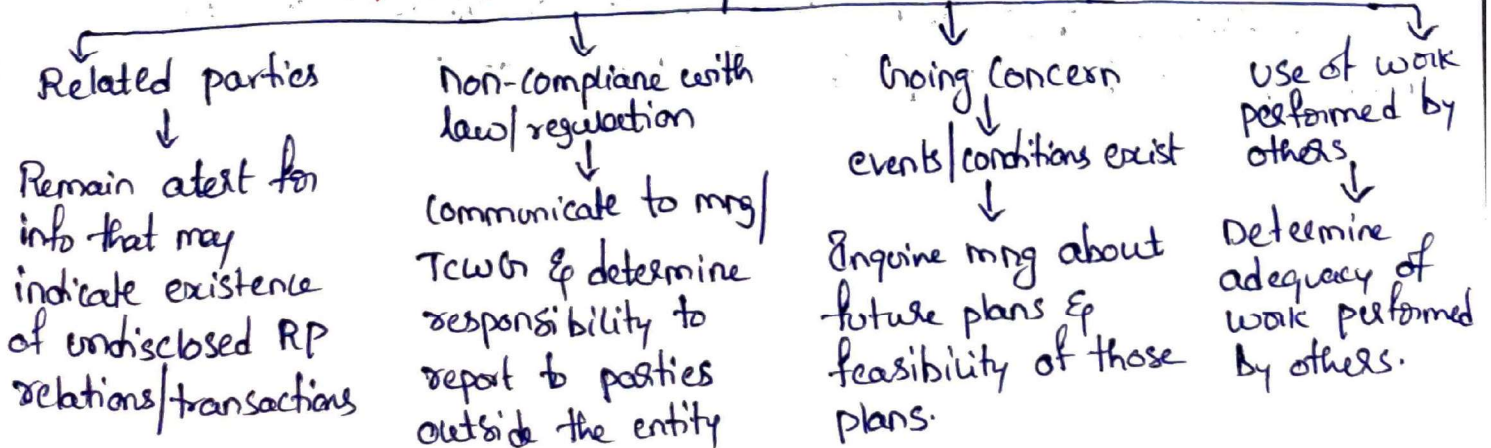 Related parties
Remain alert for
info that may
indicate existence
of undisclosed RP
relations/transactions
Non-compliane with
law/regulation
Communicate to mng/
TCWG & determine
responsibility to
report to parties
outside the entity
Going Concern
events/conditions exist
Inquire mng about
future plans &
feasibility of those
plans.
Use of work
performed by
others
Determine
adequacy of
work performed
by others.